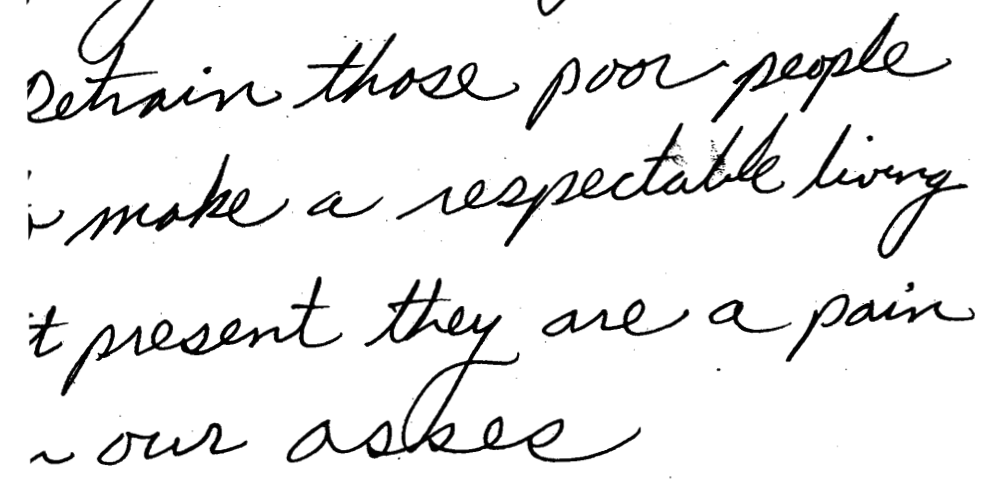 Retrain those poor people
make a respectable living
t present they are a pain
our asses